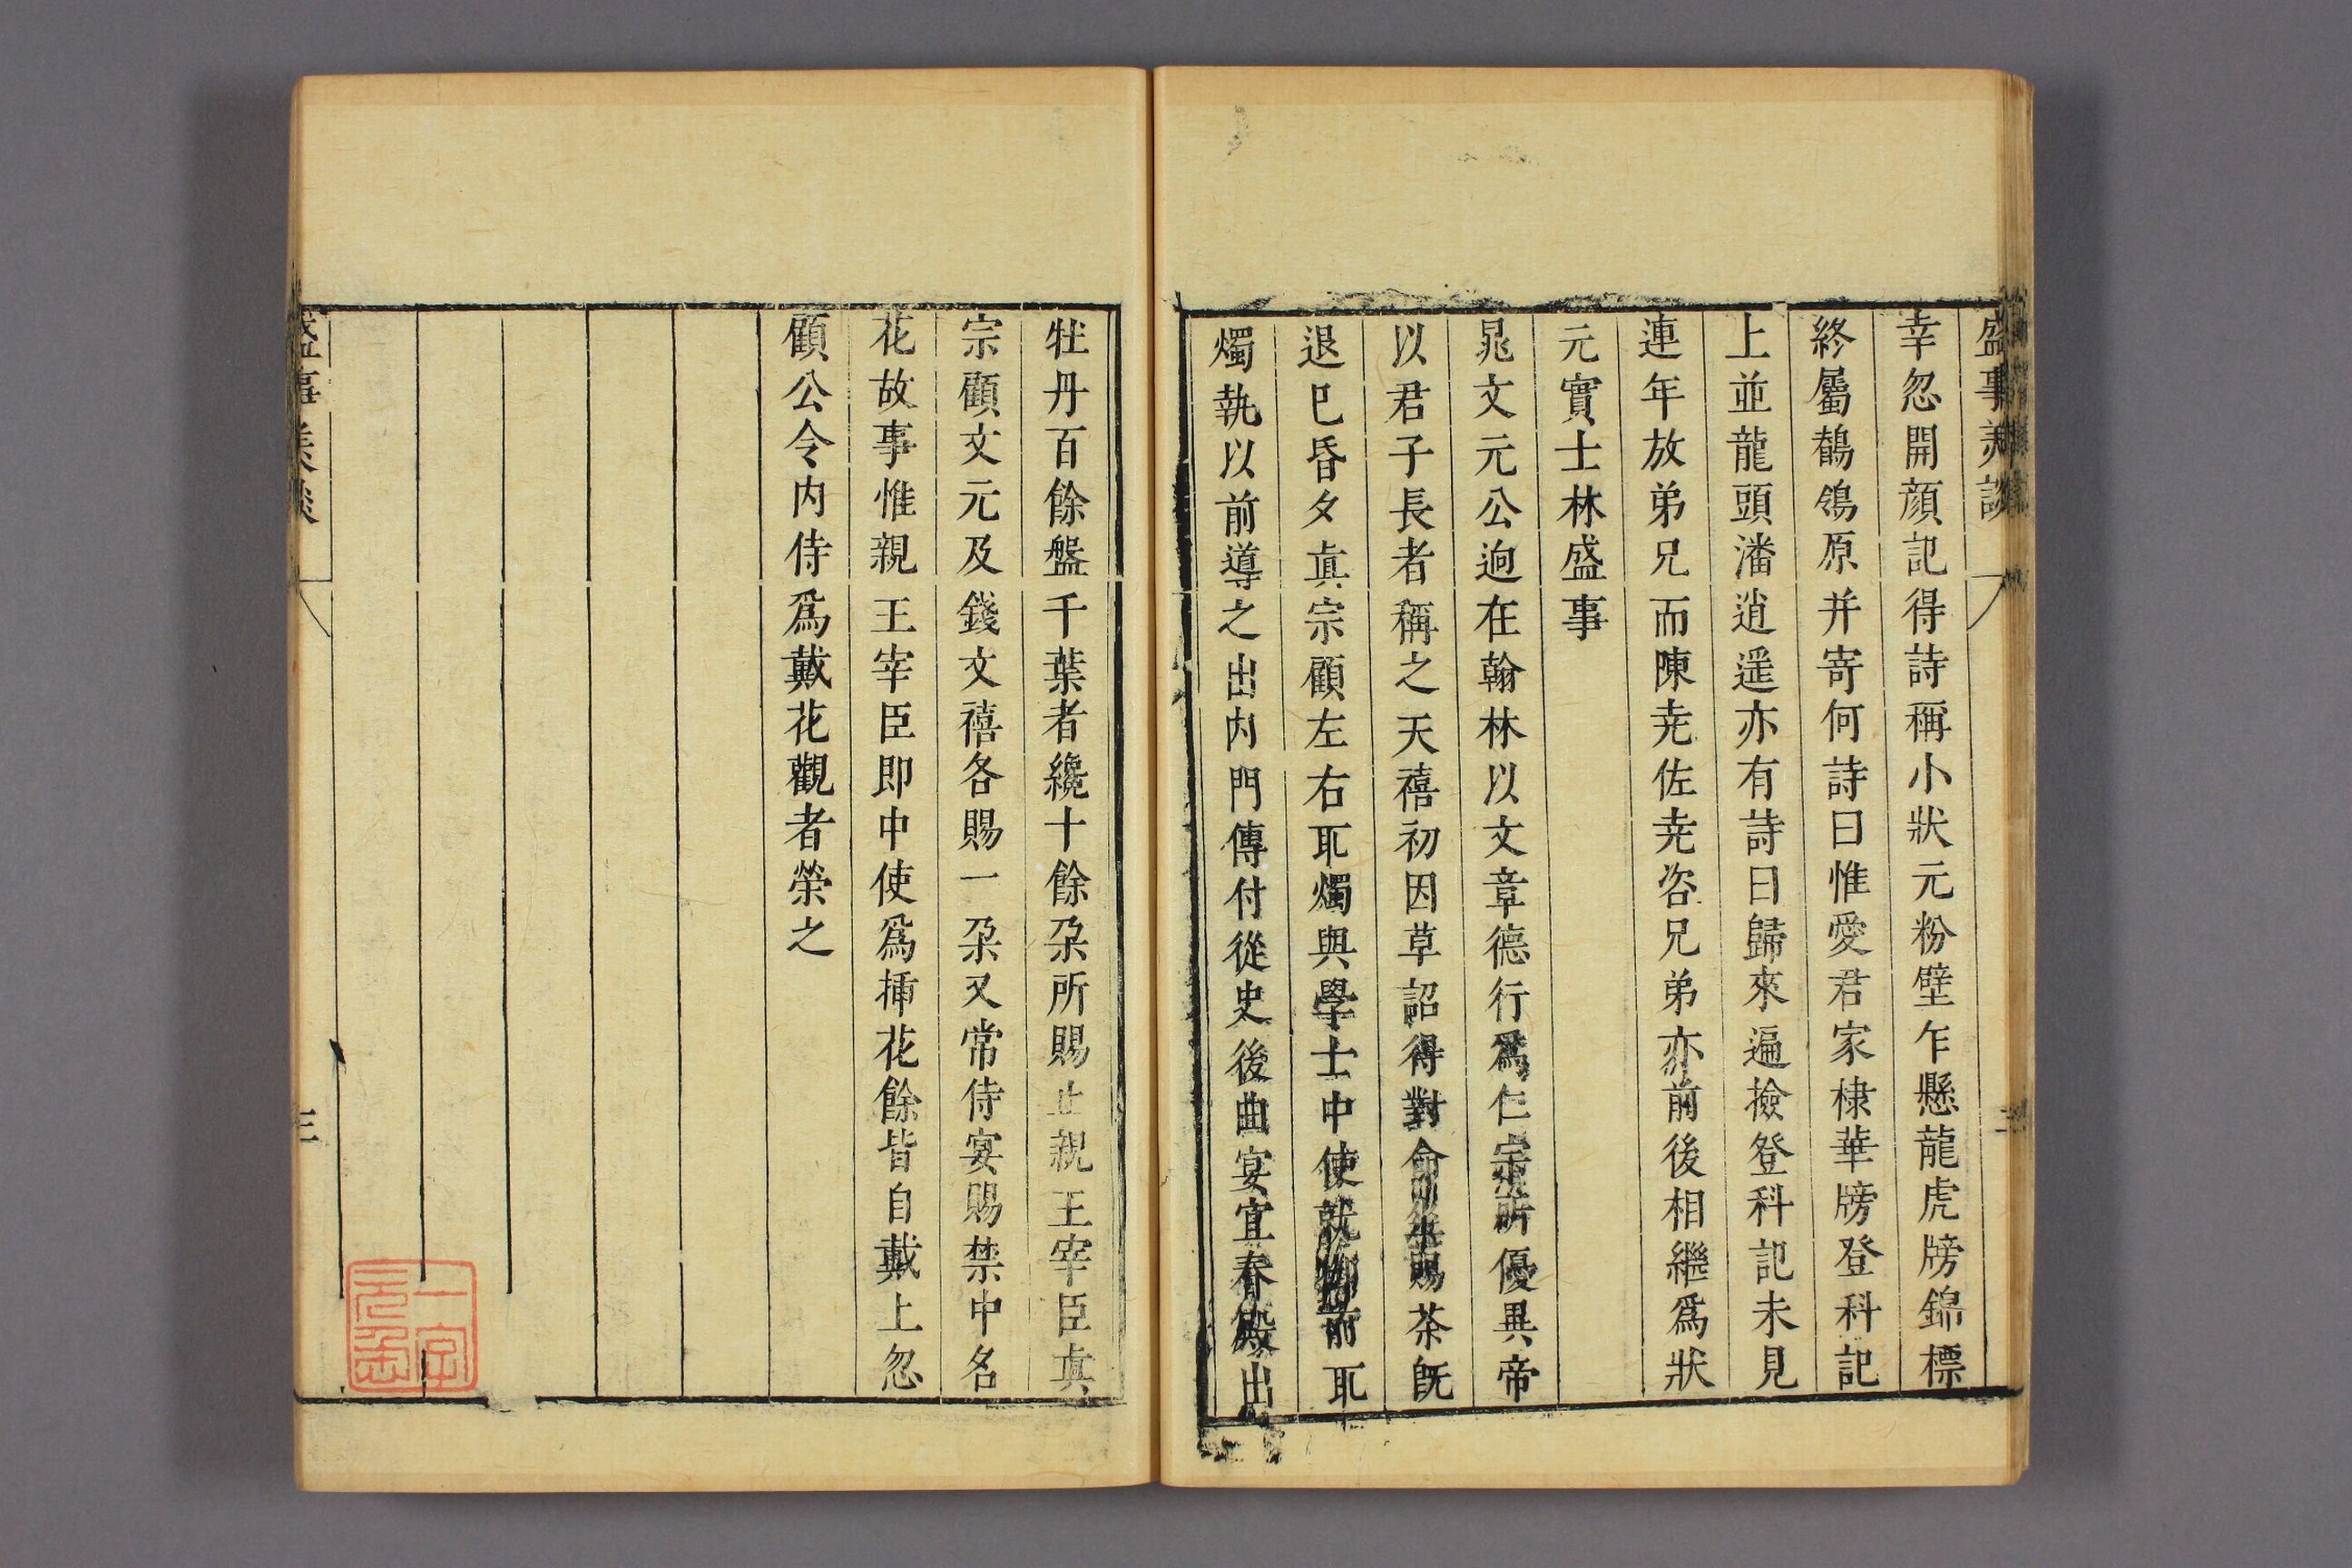 盛事美談
幸忽開顔記得詩稱小狀元粉壁乍懸龍虎牓錦標
終屬鶺鴒原并寄何詩曰惟愛君家棣華牓登科記
上並龍頭潘逍遥亦有詩曰歸來遍撿登科記未見
連年放弟兄而陳尭佐尭咨兄弟亦前後相繼爲狀
元實士林盛事
晁文元公逈在翰林以文章德行爲仁宗所優異帝
以君子長者稱之天禧初因草詔得對命坐賜茶旣
退巳昏夕眞宗顧左右取燭與學士中使就御前取
燭執以前導之出内門傳付從史後曲宴宜春殿出
牡丹百餘盤千葉者纔十餘朶所賜止親王宰臣眞
宗顧文元及錢文禧各賜一朶又常侍宴賜禁中名
花故事惟親王宰臣即中使爲揷花餘皆自戴上忽
顧公令内侍爲戴花觀者榮之
盛事美談
三